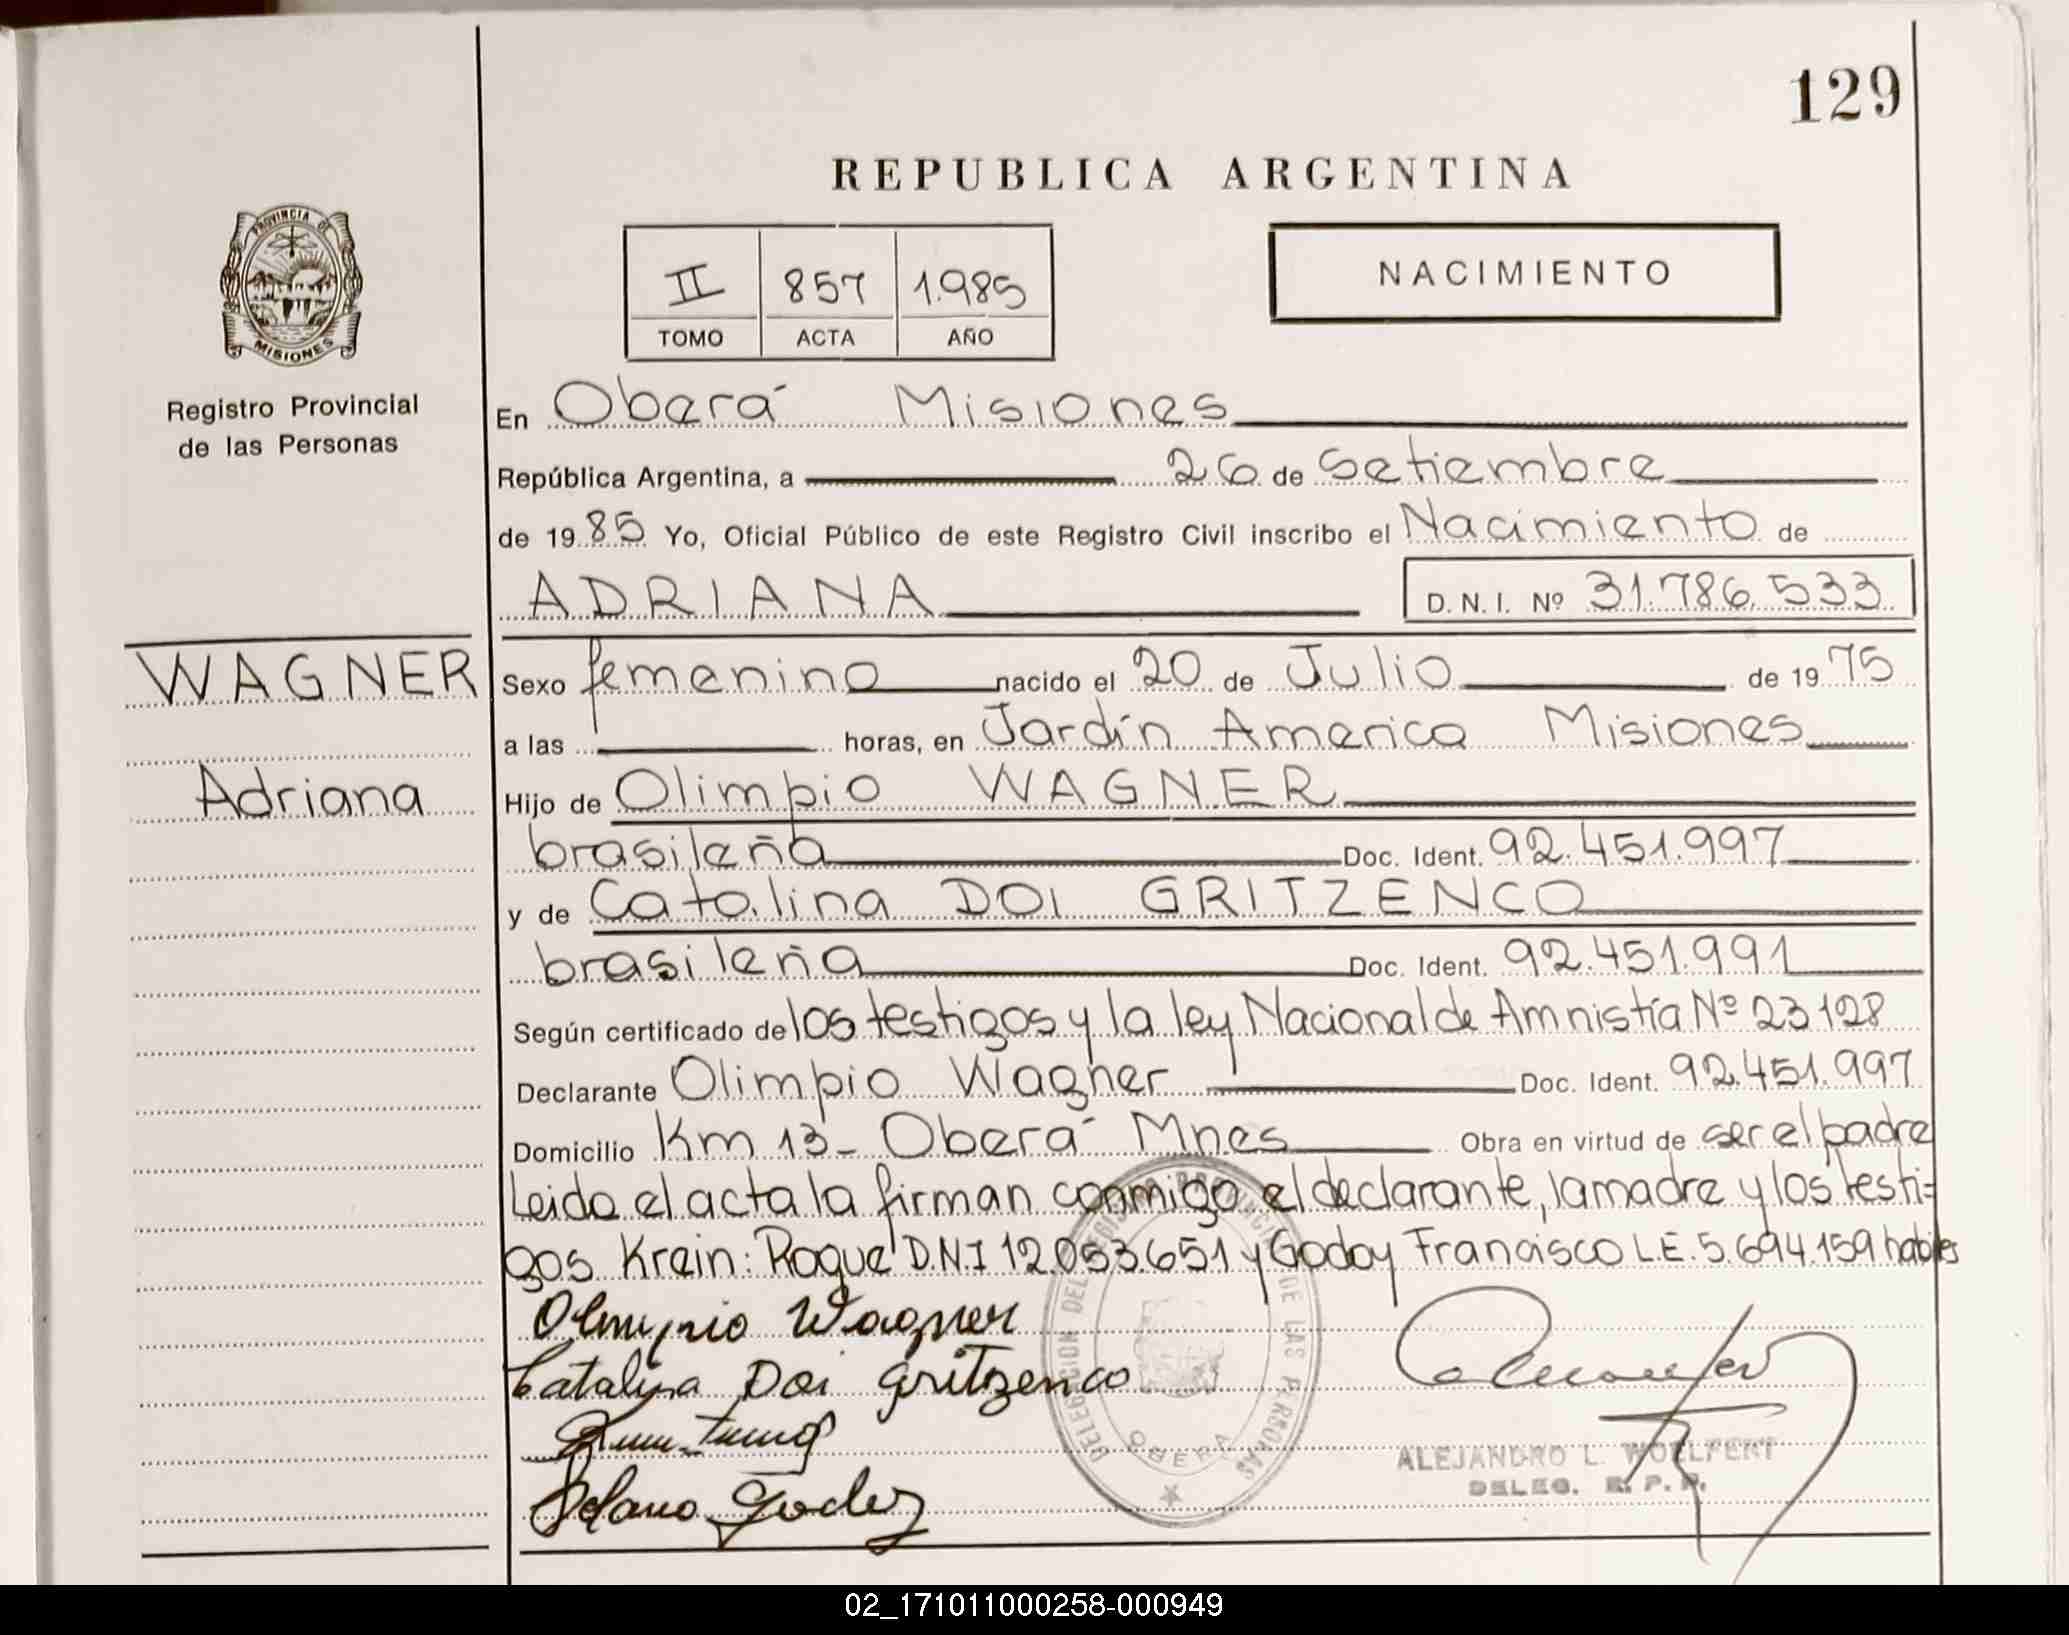 129
REPUBLICA ARGENTINA
PROVINCIA DE
MISIONES
Registro Provincial
de las Personas
II 857 1.985
TOMO ACTA AÑO
NACIMIENTO
En Oberá Misiones
República Argentina, a 26 de Setiembre
de 1985 Yo, Oficial Público de este Registro Civil inscribo el Nacimiento de
ADRIANA D.N.I. Nº 31.786.533
WAGNER
Adriana
Sexo femenino nacido el 20 de Julio de 1975
a las horas, en Jardín America Misiones
Hijo de Olimpio WAGNER
brasileña Doc. Ident. 92.451.997
y de Catalina DOI GRITZENCO
brasileña Doc. Ident. 92.451.991
Según certificado de los testigos y la ley Nacional de Amnistía Nº 23128
Declarante Olimpio Wagner Doc. Ident. 92.451.997
Domicilio Km 13 - Oberá Mnes Obra en virtud de ser el padre
Leido el acta la firman conmigo el declarante, la madre y los testi=
gos Krein: Roque D.N.I 12.053.651 y Godoy Francisco L.E. 5.694.159 habiles
Olimpio Wagner
Catalina Doi Gritzenco
DELEGACION DEL REGISTRO PROVINCIAL DE LAS PERSONAS
OBERA
ALEJANDRO L. WOELFERT
DELEG. R. P. P.
02_171011000258-000949